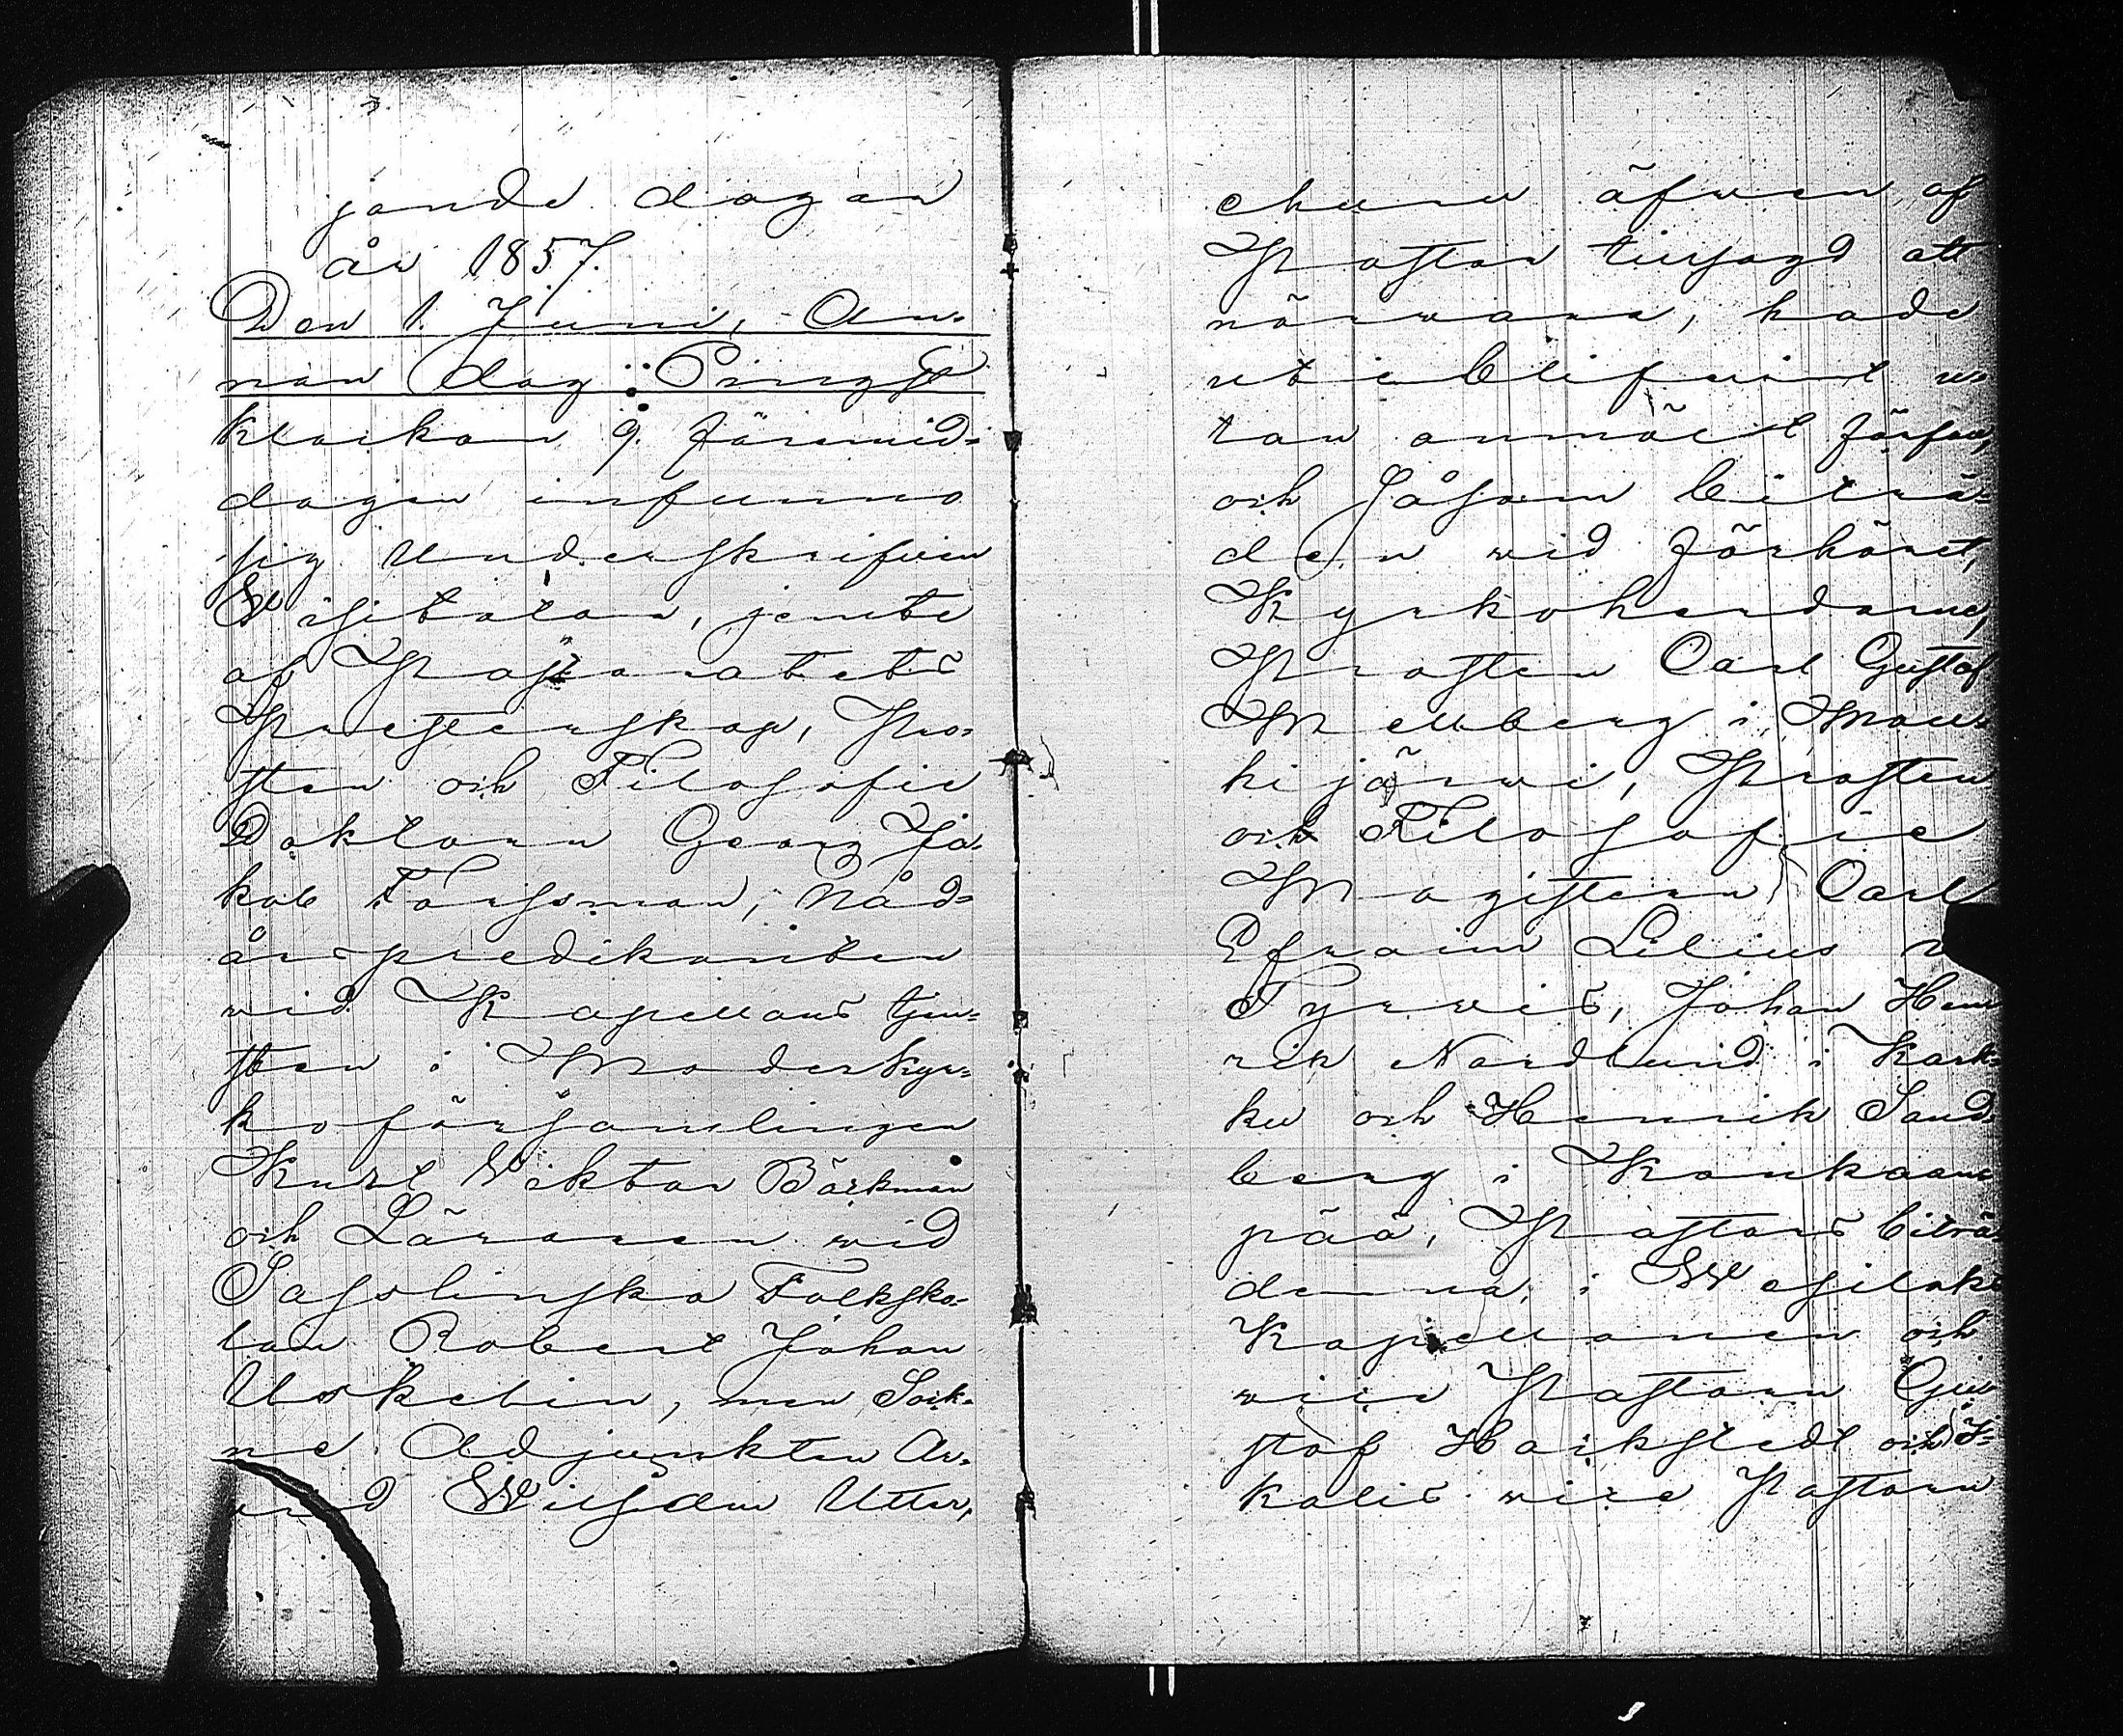 jande dagar
år 1857.
Den 1. Juni, An-
nan dag Pingst
klockan 9. förmid-
dagen infunno
sig Underskrifven
Visitator, jemte
af Pastoratets
Presterskap, Pro-
sten och Filosofie
Doktorn Georg Ja-
kob Forssman, Nåd-
årspredikanten
vid Kapellans tjen-
sten i Moderkyr-
koförsamlingen
Knut Viktor Bäckman
och Läraren vid
Sasslinska Folksko-
lan Robert Johan
men Sock-
ne Adjunkten Ar-
vid Vilhelm Utter,
äfven af
Pastor tillsagd att
närvara, hade
uteblifvit u-
tan anmäldt förfall,
och såsom biträ-
den vid förhöret,
Kyrkoherdarne,
Prosten Carl Gustaf
Mellberg i Mou-
hijärvi, Prosten
och Filosofie
Magistern Carl
Efraim Lilius
Tyrvis, Johan Hen-
rik Nordlund i Kark-
ku och Henrik Sand-
berg i Kankaan-
pää, Pastors biträ-
derna, i Vesilaks
Kapellanen och
vice Pastorn Gu-
staf Hackstedt och I-
kalis vice Pastorn